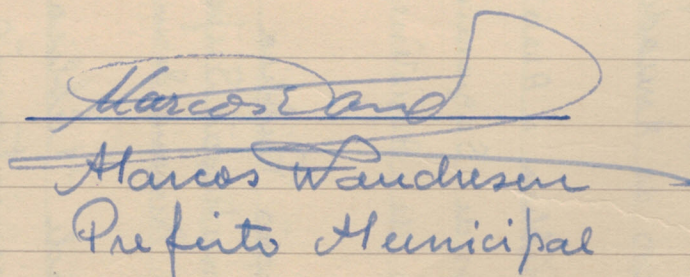 Marcos Wand
Marcos Wandresen
Prefeito Municipal